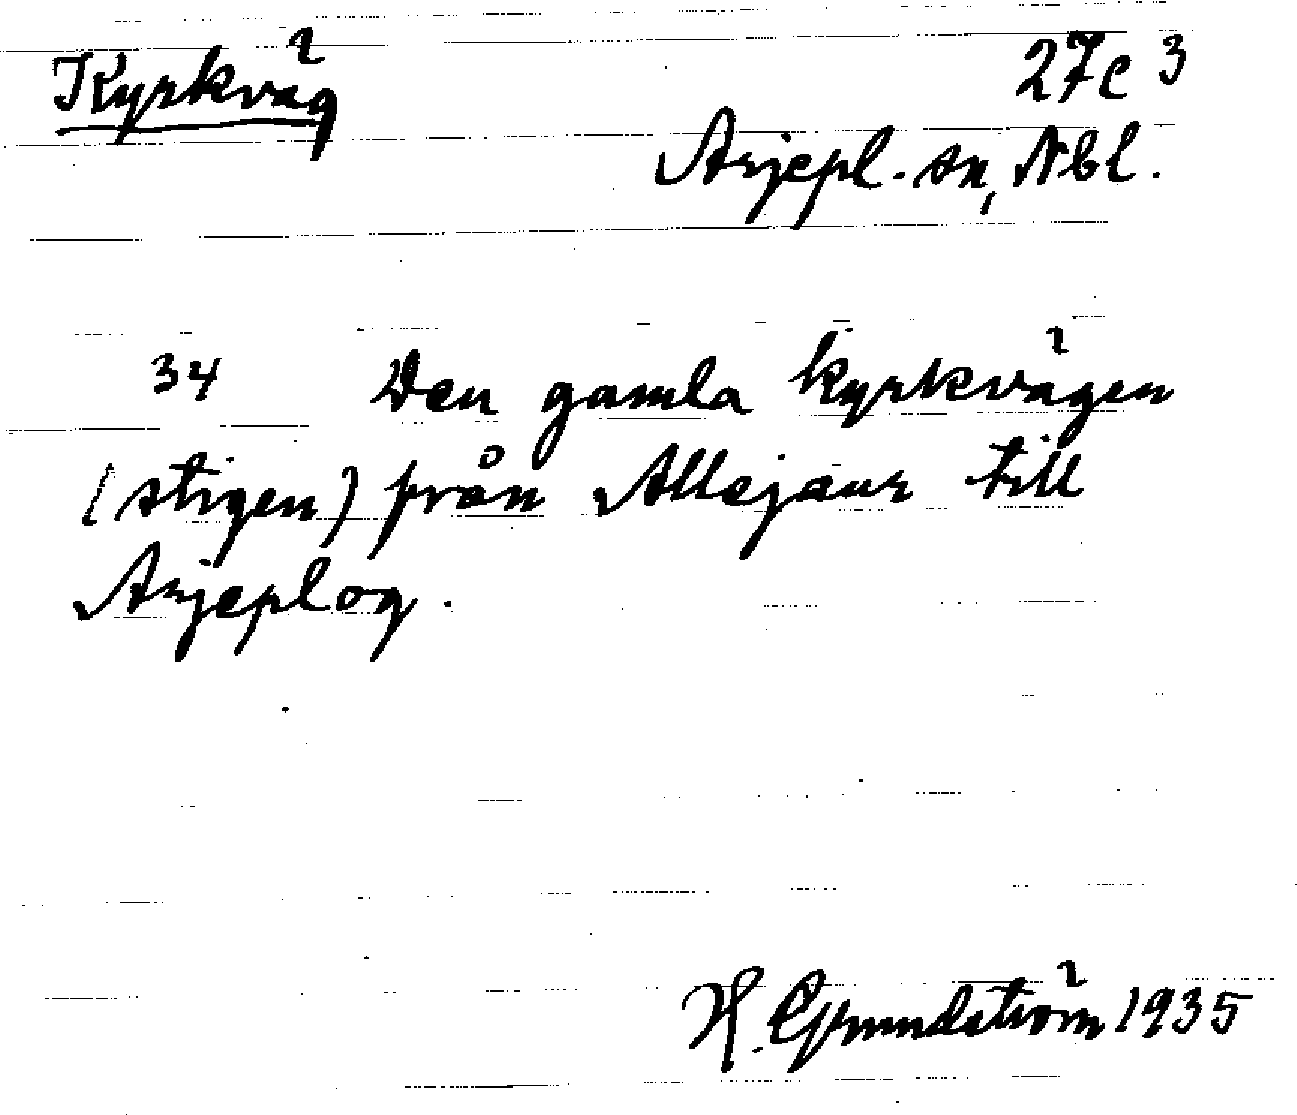 Kyrkväg
27c 3
Arjepl. sn, Nbl.
34 Den gamla kyrkvägen
(stigen) från Allejaur till
Arjeplog.
H. Grundström 1935